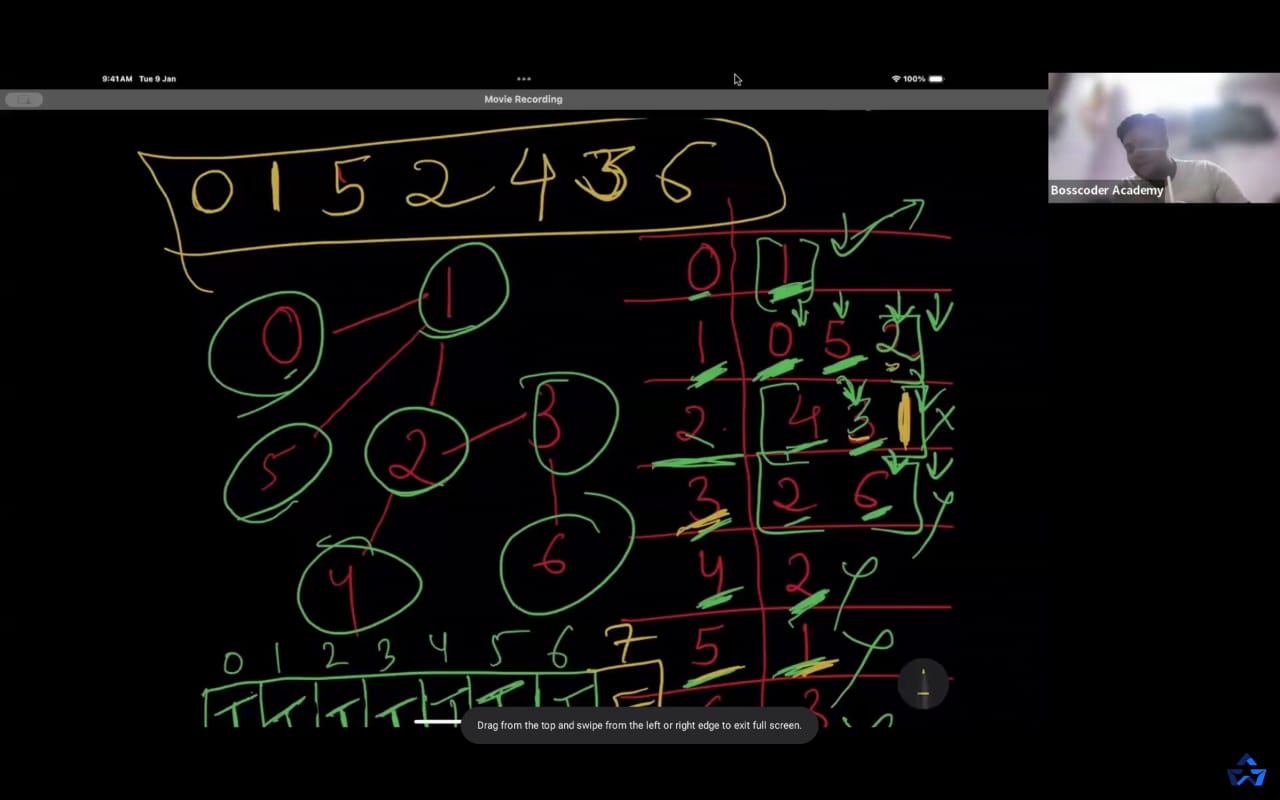 9:41 AM Tue 9 Jan
100%
Movie Recording
Bosscoder Academy
0 1 5 2 4 3 6
0 1
1 0 5 2
2 4 3 1
3 2 6
4 2
5 1
3
0 1
5 2 3
4 6
0 1 2 3 4 5 6 7
T T T T T T T F
Drag from the top and swipe from the left or right edge to exit full screen.